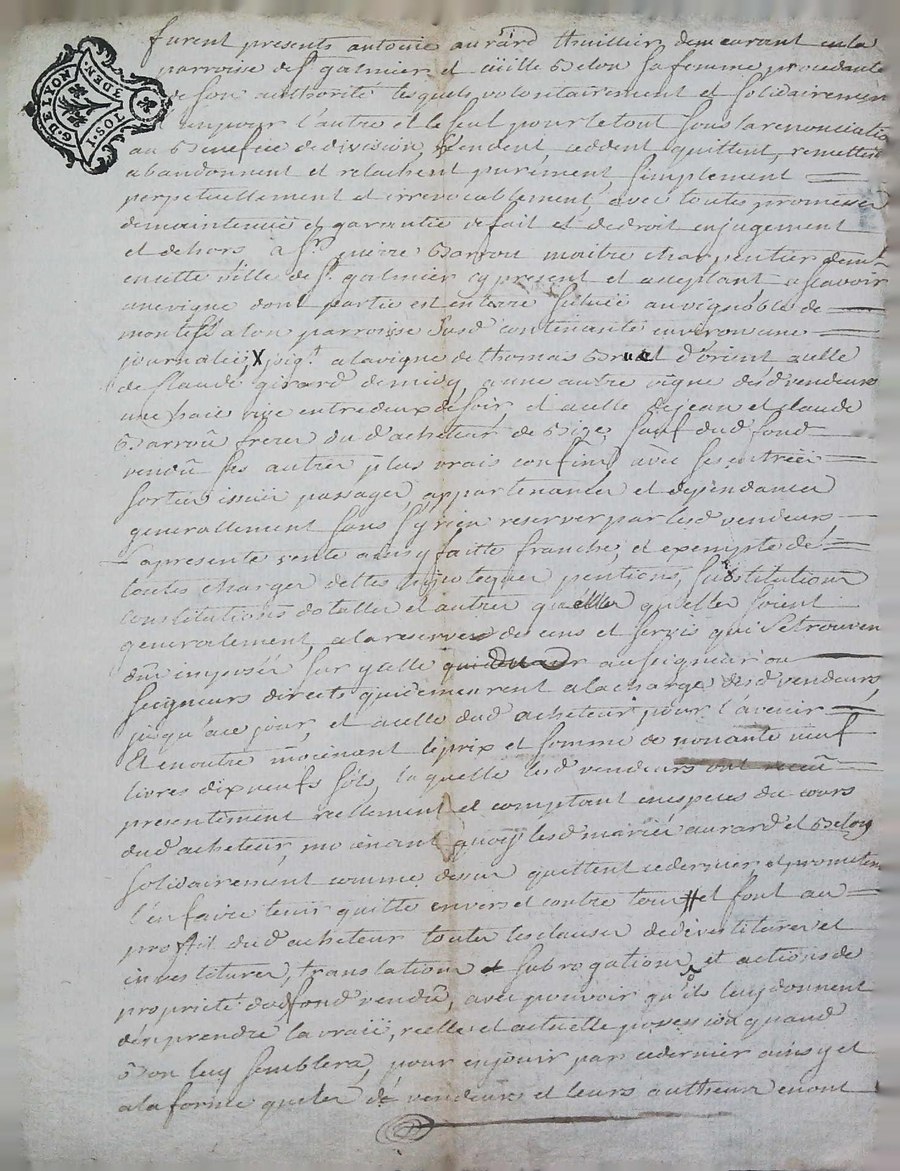 G. DE LYON
3 DEN.
1 SOL.
furent presents antoine aurard thuillier demeurant en la
parroise de St galmier et Belon sa femme procedante
de son authorité lesquels volontairement et solidairement
un pour l'autre et le seul pour le tout sous la renonciation
au Benefice de division, vendent cedent quittent, remettent
abandonnent et relachent purement, simplement
perpetuellement et irrevocablement, avec toutes promesses
de maintenüe et garantie de fait et de droit en jugement
et dehors a Sr pierre Barrou maitre charpentier demt
en cette ville de St galmier cy present et acceptant a scavoir
une vigne dont partie est en terre située au vignoble de
parroise susd contenant environ une
journalié, X joigt a la vigne de thomas d'orient a celle
de Claude girard de midy, a une autre vigne desd vendeurs
une haie vive entre deux de soir, et a celle de jean et claude
Barroû freres dud acheteur de Bize, sauf dud fond
vendû ses autres plus vrais confins avec ses entrées
sorties issües passages, appartenances et dependances
generallement sans y rien reserver par lesd vendeurs
La presente vente ainsy faitte franche, et exempte de
toutes charges dettes hypoteques pentions, substitutions
constitutions dotalles et autres quelles quelles soient
generalement, a la reserve des cens et servis qui se trouveront
dûs imposés sur ycelle au seigneur ou
seigneurs directs qui demeurent a la charge desd vendeurs,
jusqu'a ce jour, et a celle dud acheteur pour l'avenir
Et en outre moienant le prix et somme de nonante neuf
livres dix neufs sols, laquelle lesd vendeurs ont receû
presentement reellement et comptant en especes du cours
dud acheteur, moienant quoy lesd mariés aurard et Belon
solidairement comme dessus quittent ce dernier, et promettent
l'en faire tenir quitte envers et contre tous # et font au
proffit dud acheteur toutes les clauses de devestitures et
investitures, translations subrogations et actions de
proprieté dud fond vendû, avec pouvoir qu'ils luy donnent
d'en prendre la vraië, reelle et actuelle possession quand
Bon luy semblera, pour en jouir par ce dernier ainsy et
a la forme que les vendeurs et leurs autheurs en ont